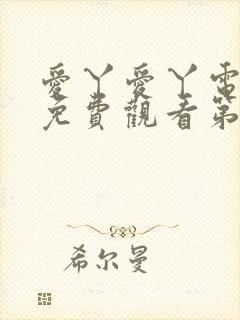 愛丫愛丫電
免費觀看第
希尔曼